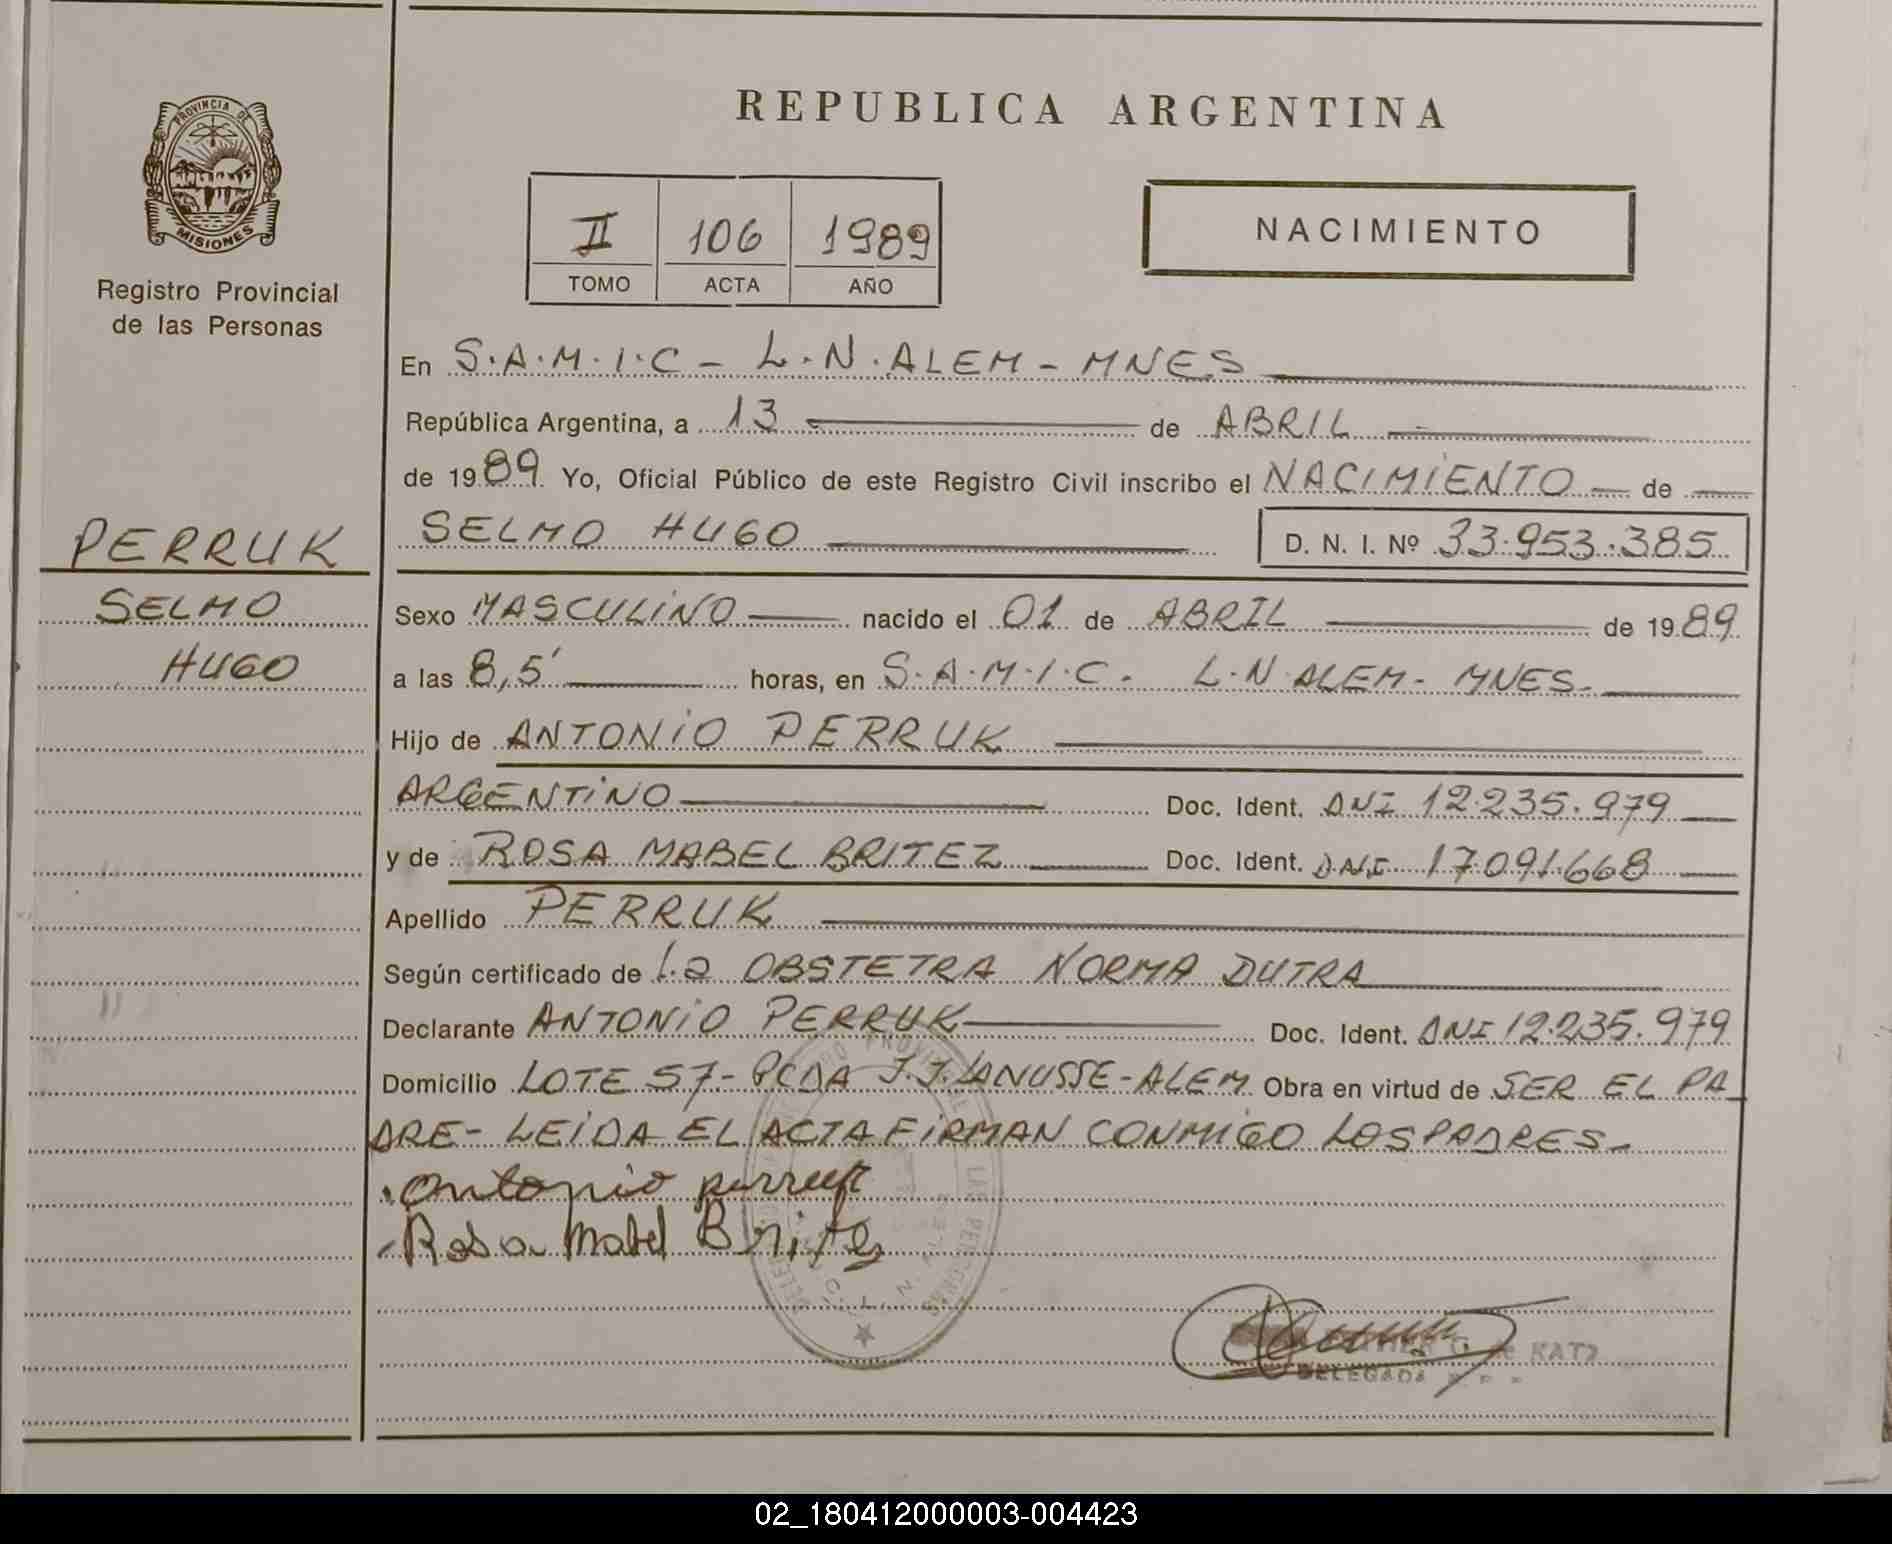 REPUBLICA ARGENTINA
PROVINCIA DE
MISIONES
Registro Provincial
de las Personas
II 106 1989
TOMO ACTA AÑO
NACIMIENTO
En S.A.M.I.C - L.N.ALEM - MNES
República Argentina, a 13 de ABRIL
de 1989 Yo, Oficial Público de este Registro Civil inscribo el NACIMIENTO de
SELMO HUGO D. N. I. Nº 33.953.385
PERRUK
SELMO
HUGO
Sexo MASCULINO nacido el 01 de ABRIL de 1989
a las 8,5' horas, en S.A.M.I.C. L.N ALEM - MNES.
Hijo de ANTONIO PERRUK
ARGENTINO Doc. Ident. DNI 12.235.979
y de ROSA MABEL BRITEZ Doc. Ident. DNI 17.091.668
Apellido PERRUK
Según certificado de La OBSTETRA NORMA DUTRA
Declarante ANTONIO PERRUK Doc. Ident. DNI 12.235.979
Domicilio LOTE 57 - PCDA J.J.LANUSSE - ALEM Obra en virtud de SER EL PA
DRE - LEIDA EL ACTA FIRMAN CONMIGO LOS PADRES.
Antonio perruk
Rosa Mabel Britez
LAS PERSONAS
KATZ
DELEGADA
02_180412000003-004423